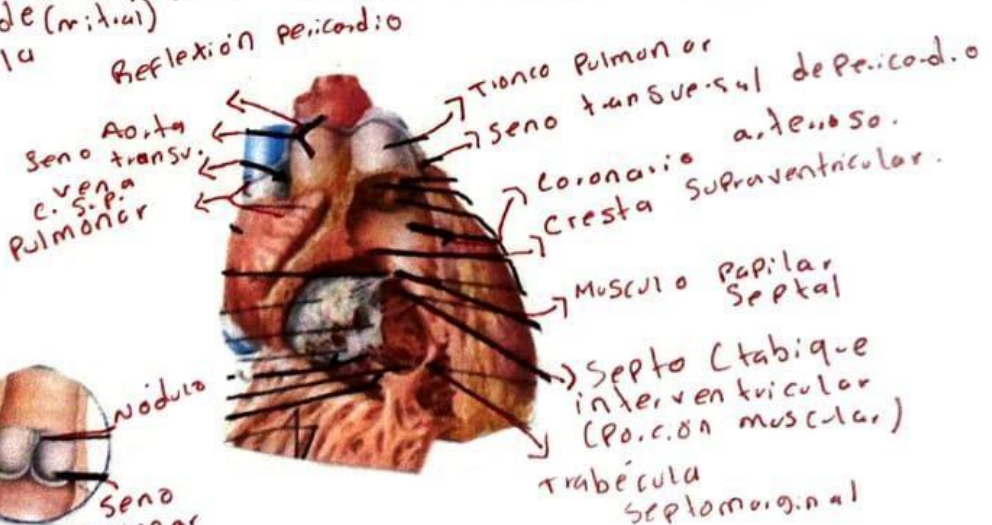 de (mitral)
la
Reflexión pericardio
Aorta
Seno transv.
vena
c. s. p.
Pulmonar
Tronco Pulmonar
Seno transversal de pericardio
arterioso.
Coronario
Cresta Supraventricular.
Musculo papilar
Septal
Septo (tabique
interventricular
(Porción muscular)
Trabécula
Septomarginal
Nódulo
Seno